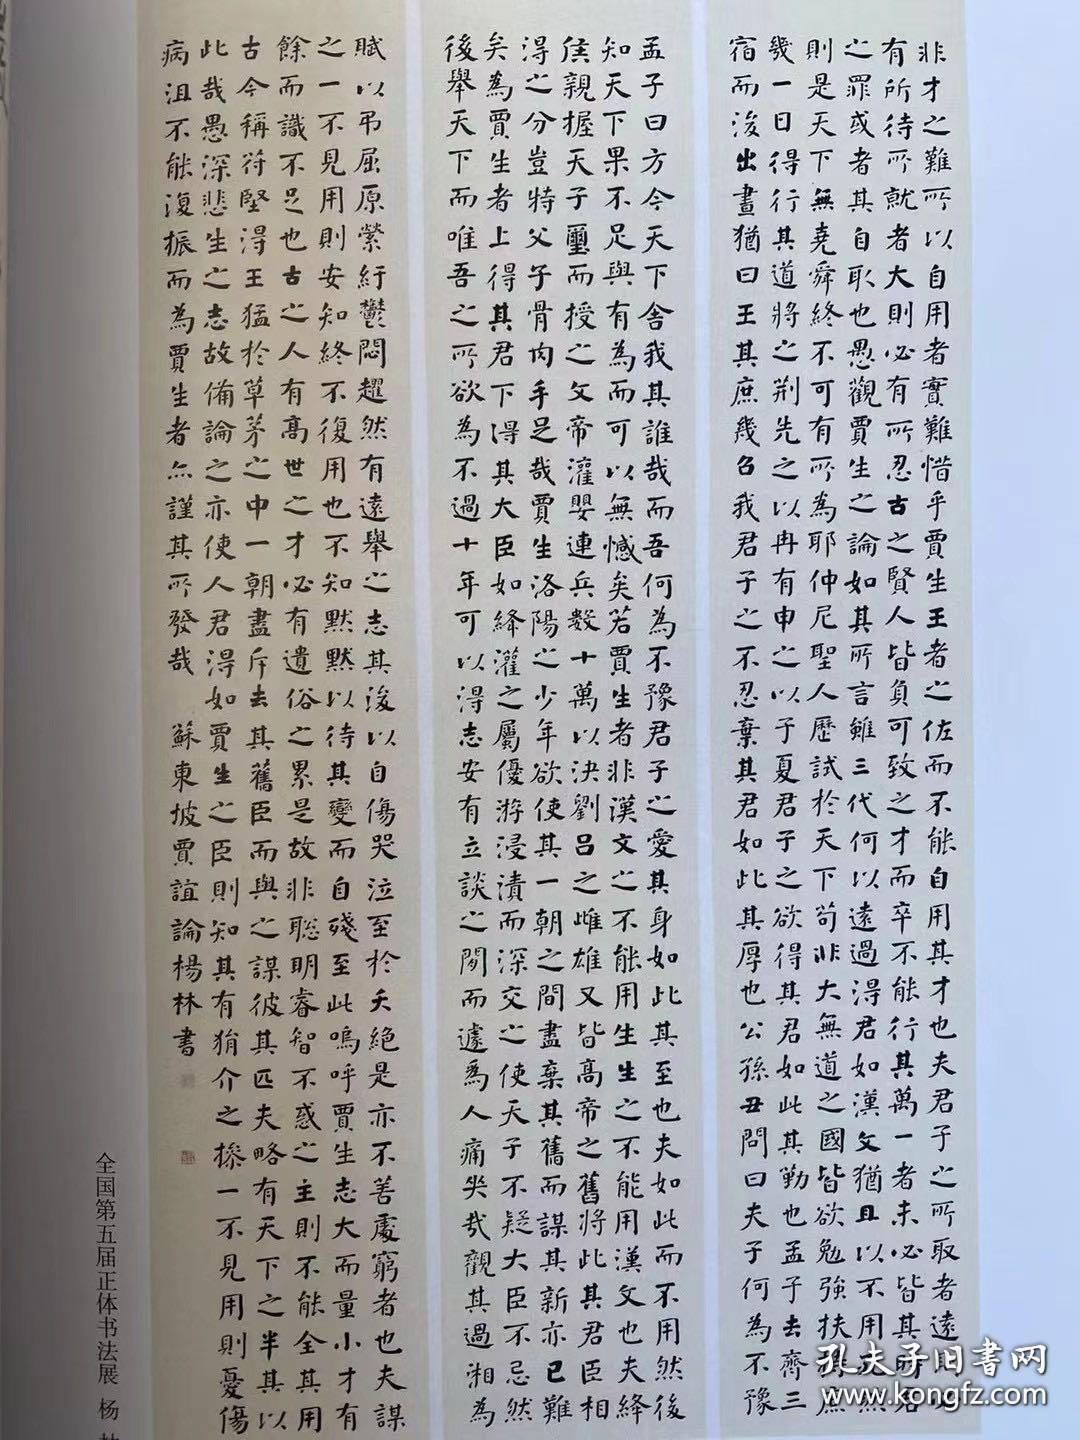 非才之難所以自用者實難惜乎賈生王者之佐而不能自用其才也夫君子之所取者遠則
有所待所就者大則必有所忍古之賢人皆負可致之才而卒不能行其萬一者未必皆其時君
之罪或者其自取也愚觀賈生之論如其所言雖三代何以遠過得君如漢文猶且以不用死然
則是天下無堯舜終不可有所為耶仲尼聖人歷試於天下苟非大無道之國皆欲勉強扶持庶
幾一日得行其道將之荆先之以冉有申之以子夏君子之欲得其君如此其勤也孟子去齊三
宿而後出晝猶曰王其庶幾召我君子之不忍棄其君如此其厚也公孫丑問曰夫子何為不豫
孟子曰方今天下舍我其誰哉而吾何為不豫君子之愛其身如此其至也夫如此而不用然後
知天下果不足與有為而可以無憾矣若賈生者非漢文之不能用生生之不能用漢文也夫絳
侯親握天子璽而授之文帝灌嬰連兵數十萬以決劉呂之雌雄又皆高帝之舊將此其君臣相
得之分豈特父子骨肉手足哉賈生洛陽之少年欲使其一朝之間盡棄其舊而謀其新亦已難
矣為賈生者上得其君下得其大臣如絳灌之屬優游浸漬而深交之使天子不疑大臣不忌然
後舉天下而唯吾之所欲為不過十年可以得志安有立談之間而遽為人痛哭哉觀其過湘為
賦以弔屈原縈紆鬱悶趯然有遠舉之志其後以自傷哭泣至於夭絕是亦不善處窮者也夫謀
之一不見用則安知終不復用也不知默默以待其變而自殘至此嗚呼賈生志大而量小才有
餘而識不足也古之人有高世之才必有遺俗之累是故非聰明睿智不惑之主則不能全其用
古今稱符堅得王猛於草茅之中一朝盡斥去其舊臣而與之謀彼其匹夫略有天下之半其以
此哉愚深悲生之志故備論之亦使人君得如賈生之臣則知其有狷介之操一不見用則憂傷
病沮不能復振而為賈生者亦謹其所發哉 蘇東坡賈誼論楊林書
全国第五届正体书法展 杨
孔夫子旧书网
www.kongfz.com